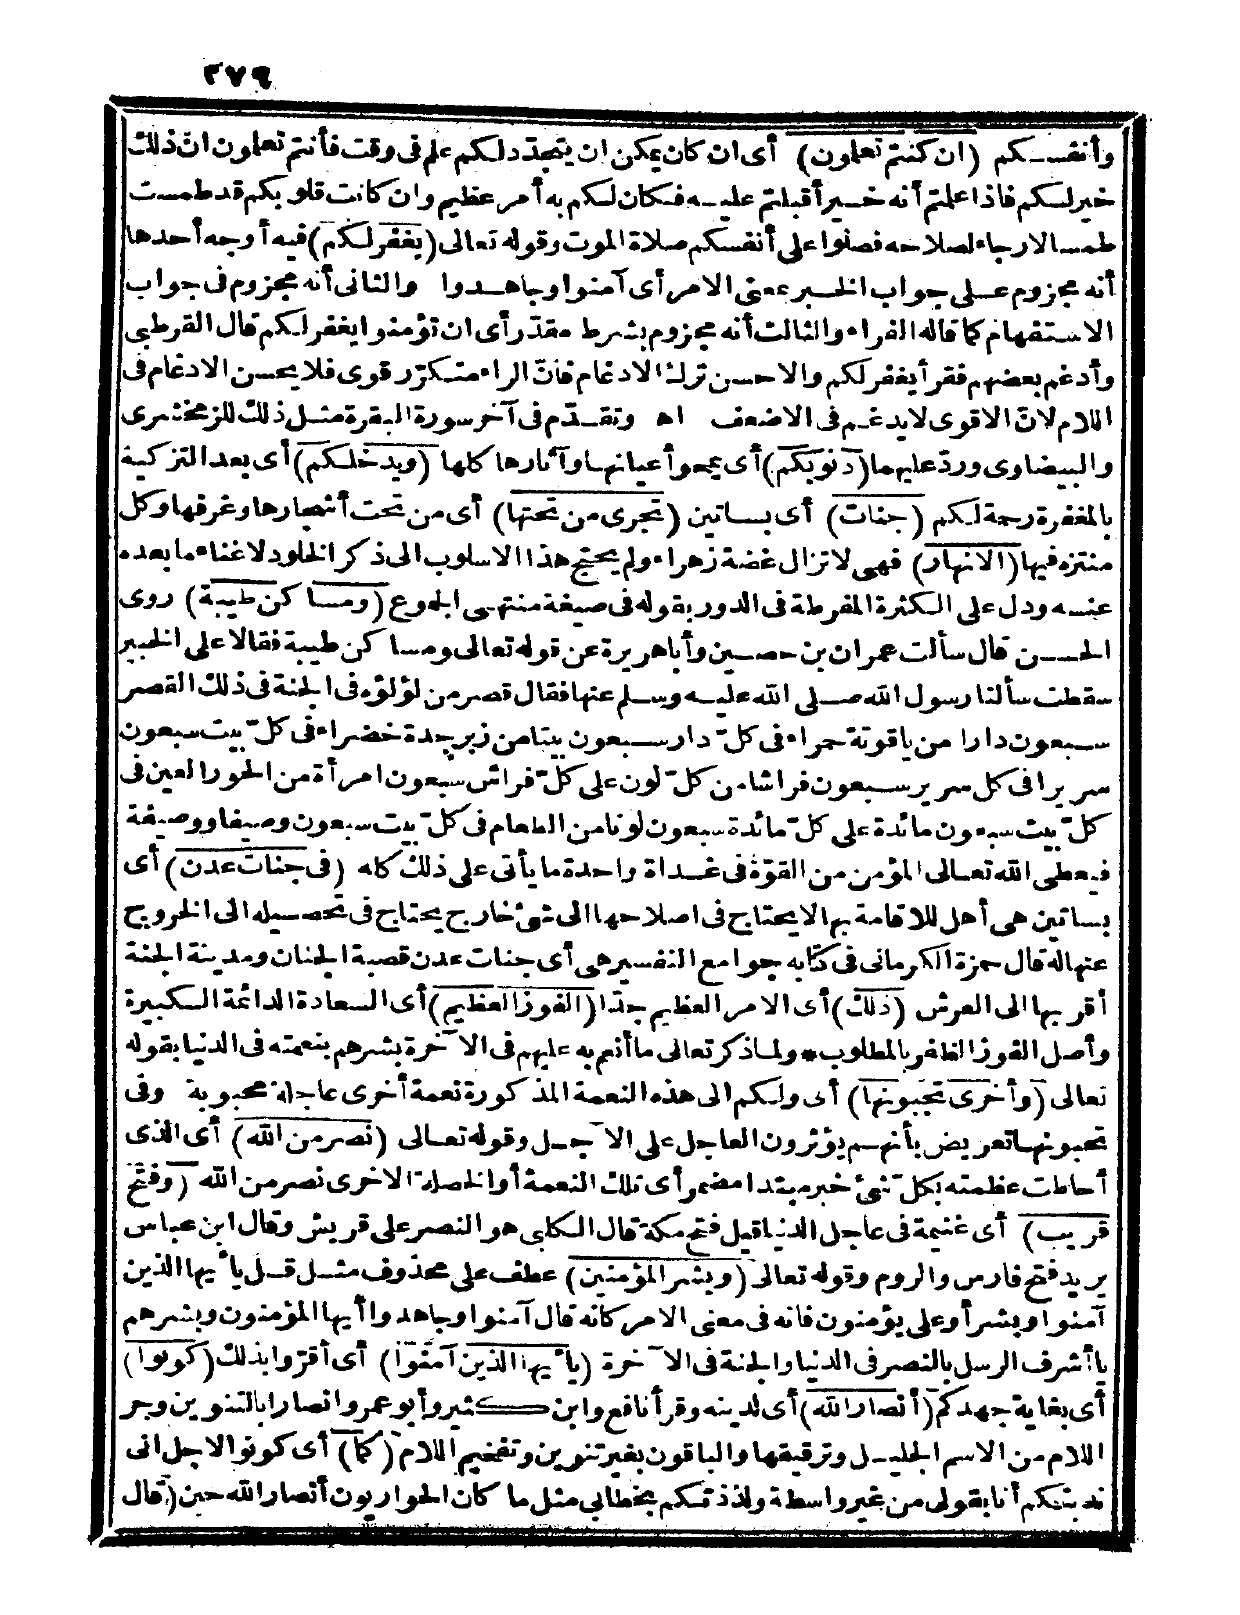 ٢٧٩
وأنفسكم (ان كنتم تعلمون) أى ان كان يمكن ان يتجدّد لكم علم فى وقت فأنتم تعلمون انّ ذلك
خير لكم فاذا علمتم أنه خير أقبلتم عليه فكان لكم به أمر عظيم وان كانت قلوبكم قد طمست
طمسا لا رجاء لصلاحه فصلوا على أنفسكم صلاة الموت وقوله تعالى (يغفر لكم) فيه أوجه أحدها
أنه مجزوم على جواب الخبر بمعنى الامر أى آمنوا وجاهدوا والثانى أنه مجزوم فى جواب
الاستفهام كما قاله الفراء والثالث أنه مجزوم بشرط مقدّر أى ان تؤمنوا يغفر لكم قال القرطبى
وأدغم بعضهم فقرأ يغفر لكم والاحسن ترك الادغام فانّ الراء متكرّر قوى فلا يحسن الادغام فى
اللام لانّ الاقوى لا يدغم فى الاضعف اه وتقدّم فى آخر سورة البقرة مثل ذلك للزمخشرى
والبيضاوى وردّ عليهما (ذنوبكم) أى يمحو أعيانها وآثارها كلها (ويدخلكم) أى بعد التزكية
بالمغفرة رحمة لكم (جنات) أى بساتين (تجرى من تحتها) أى من تحت أشجارها وغرفها وكل
متنزه فيها (الانهار) فهى لا تزال غضة زهراء ولم يحتج هذا الاسلوب الى ذكر الخلود لاغناء ما بعده
عنه ودل على الكثرة المفرطة فى الدور بقوله فى صيغة منتهى الجموع (ومساكن طيبة) روى
الحسن قال سألت عمران بن حصين وأبا هريرة عن قوله تعالى ومساكن طيبة فقالا على الخبير
سقطت سألنا رسول الله صلى الله عليه وسلم عنها فقال قصر من لؤلؤة فى الجنة فى ذلك القصر
سبعون دارا من ياقوتة حمراء فى كلّ دار سبعون بيتا من زبرجدة خضراء فى كلّ بيت سبعون
سريرا فى كل سرير سبعون فراشا من كلّ لون على كلّ فراش سبعون امرأة من الحور العين فى
كلّ بيت سبعون مائدة على كلّ مائدة سبعون لونا من الطعام فى كلّ بيت سبعون وصيفا ووصيفة
فيعطى الله تعالى المؤمن من القوّة فى غداة واحدة ما يأتى على ذلك كله (فى جنات عدن) أى
بساتين هى أهل للاقامة بها لا يحتاج فى اصلاحها الى شئ خارج يحتاج فى تحصيله الى الخروج
عنها له قال حمزة الكرمانى فى كتابه جوامع التفسير هى أى جنات عدن قصبة الجنان ومدينة الجنة
أقربها الى العرش (ذلك) أى الامر العظيم جدّا (الفوز العظيم) أى السعادة الدائمة الكبيرة
وأصل الفوز الظفر بالمطلوب * ولما ذكر تعالى ما أنعم به عليهم فى الآخرة بشرهم بنعمته فى الدنيا بقوله
تعالى (وأخرى تحبونها) أى ولكم الى هذه النعمة المذكورة نعمة أخرى عاجلة محبوبة وفى
تحبونها تعريض بأنهم يؤثرون العاجل على الآجل وقوله تعالى (نصر من الله) أى الذى
أحاطت عظمته بكلّ شئ خبر مبتدا مضمر أى تلك النعمة أو الخصلة الاخرى نصر من الله (وفتح
قريب) أى غنيمة فى عاجل الدنيا قيل فتح مكة قال الكلبى هو النصر على قريش وقال ابن عباس
يريد فتح فارس والروم وقوله تعالى (وبشر المؤمنين) عطف على محذوف مثل قل يا أيها الذين
آمنوا وبشر أو على يؤمنون فانه فى معنى الامر كانه قال آمنوا وجاهدوا أيها المؤمنون وبشرهم
يا أشرف الرسل بالنصر فى الدنيا والجنة فى الآخرة (يا أيها الذين آمنوا) أى أقرّوا بذلك (كونوا)
أى بغاية جهدكم (أنصار الله) أى لدينه وقرأ نافع وابن كثير وأبو عمرو انصارا بالتنوين وجر
اللام من الاسم الجليل وترقيقها والباقون بغير تنوين وتفخيم اللام (كما) أى كونوا لاجل انى
ندبتكم أنا بقولى من غير واسطة ولذذتكم بخطابى مثل ما كان الحواريون أنصار الله حين (قال